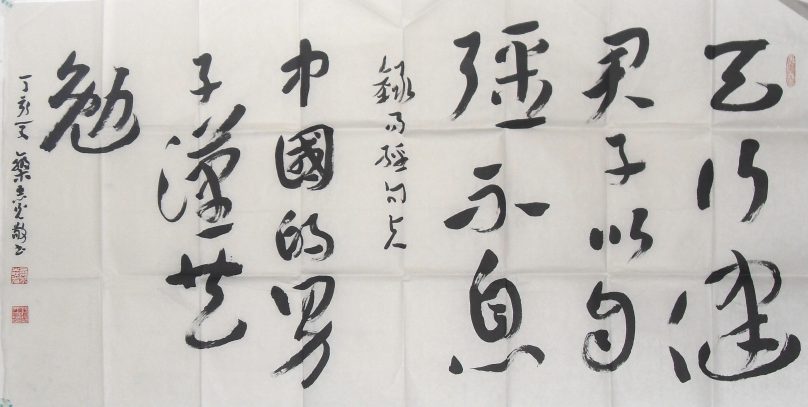 天行健
君子以自
彊不息
錄易經句与
中國的男
子漢共
勉
丁亥夏 敬書